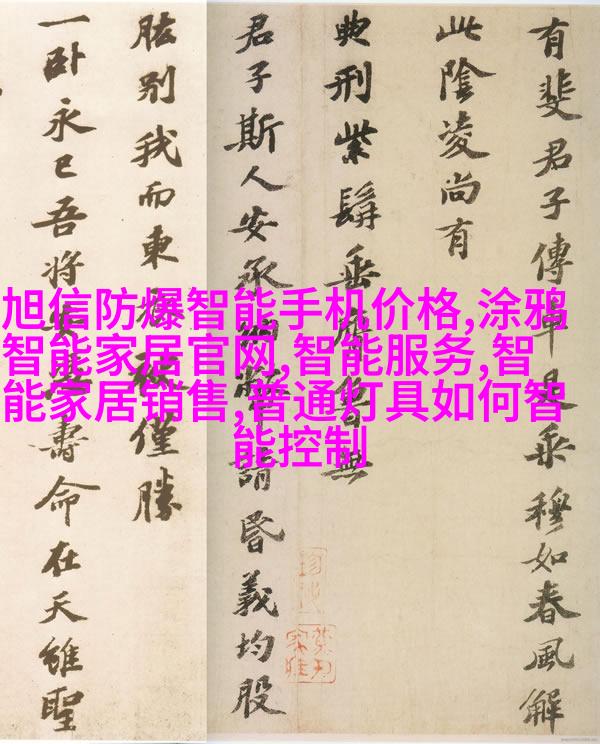 旭信防爆智能手机价格,涂鸦
智能家居官网,智能服务,智
能家居销售,普通灯具如何智
能控制
有斐君子傳車是乘穆如春風解
此陰凌尚有
典刑紫髯垂膺魯無
君子斯人安承幣請昏義均股
肱別我而東袂僅勝
一卧永已吾將安壽命在天雖聖